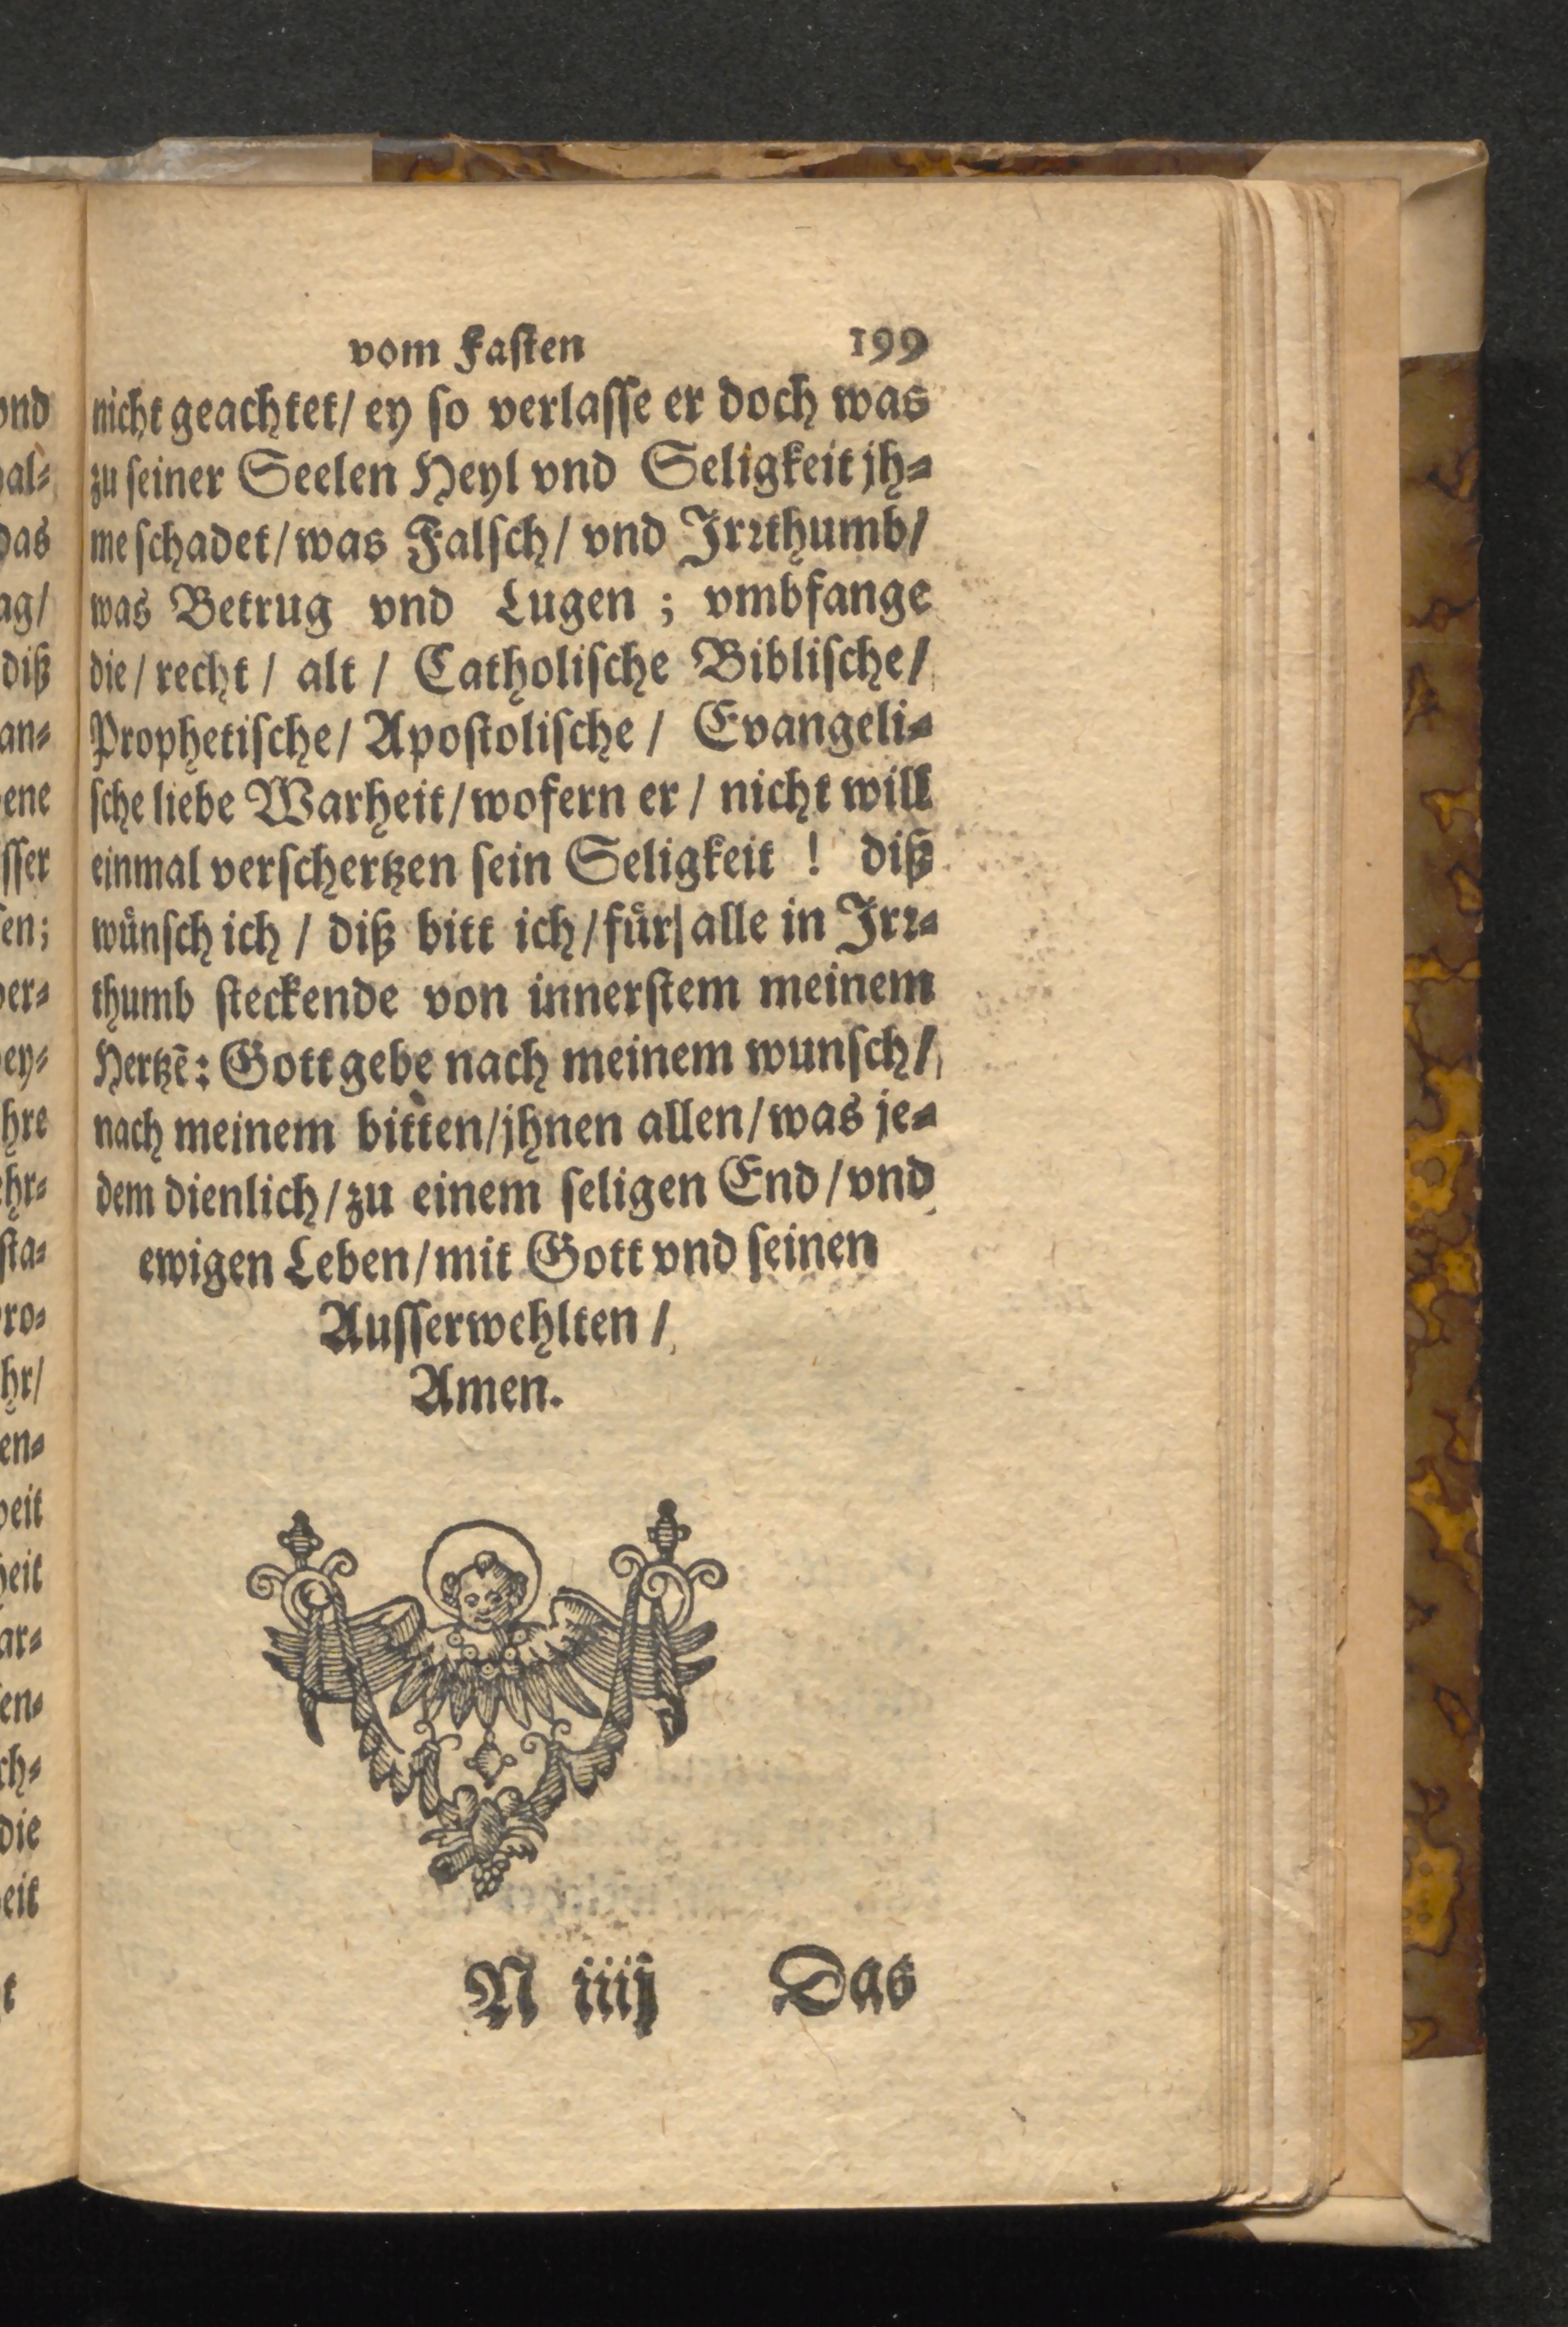 vom Fasten 199
nicht geachtet/ ey so verlasse er doch was
zu seiner Seelen Heyl vnd Seligkeit jh-
me schadet/ was Falsch/ vnd Irrthumb/
was Betrug vnd Lugen ; vmbfange
die/ recht/ alt / Catholische Biblische/
Prophetische/ Apostolische / Evangeli-
sche liebe Warheit/ wofern er / nicht will
einmal verschertzen sein Seligkeit ! diß
wünsch ich / diß bitt ich/ für alle in Irr-
thumb steckende von innerstem meinem
Hertzẽ: Gott gebe nach meinem wunsch/
nach meinem bitten/ jhnen allen/ was je-
dem dienlich/ zu einem seligen End/ vnd
ewigen Leben/ mit Gott vnd seinen
Ausserwehlten /
Amen.
N iiij Das